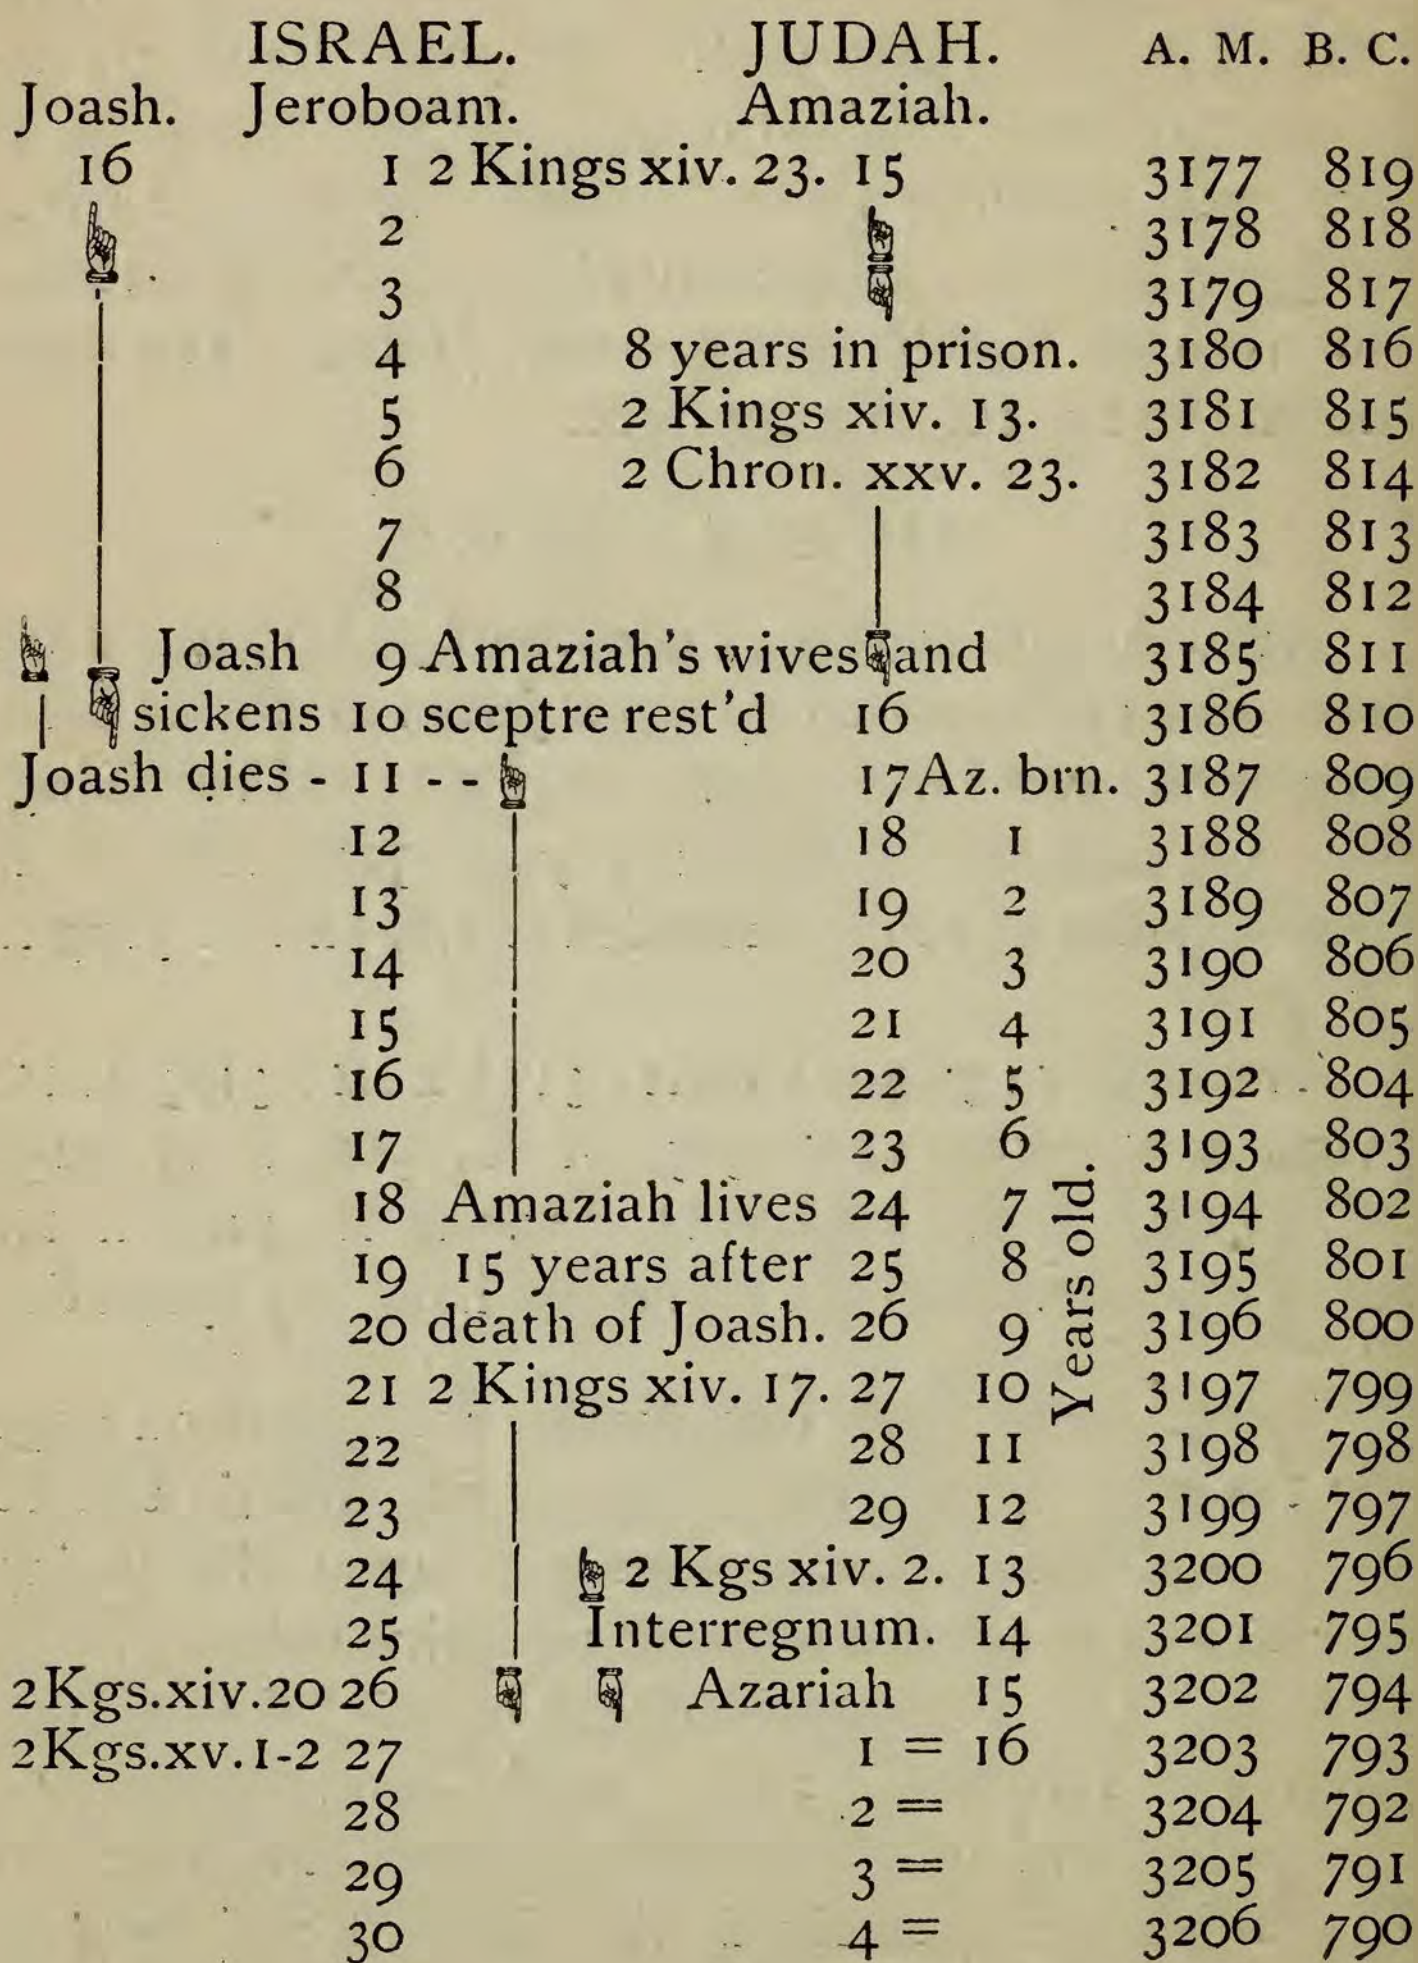 ISRAEL. JUDAH. A. M. B. C.
Joash. Jeroboam. Amaziah.
16 1 2 Kings xiv. 23. 15 3177 819
2 3178 818
3 3179 817
4 8 years in prison. 3180 816
5 2 Kings xiv. 13. 3181 815
6 2 Chron. xxv. 23. 3182 814
7 3183 813
8 3184 812
Joash 9 Amaziah's wives and 3185 811
sickens 10 sceptre rest'd 16 3186 810
Joash dies - 11 - - 17 Az. brn. 3187 809
12 18 1 3188 808
13 19 2 3189 807
14 20 3 3190 806
15 21 4 3191 805
16 22 5 3192 804
17 23 6 3193 803
18 Amaziah lives 24 7 3194 802
19 15 years after 25 8 3195 801
20 death of Joash. 26 9 3196 800
21 2 Kings xiv. 17. 27 10 3197 799
Years old.
22 28 11 3198 798
23 29 12 3199 797
24 2 Kgs xiv. 2. 13 3200 796
25 Interregnum. 14 3201 795
2 Kgs. xiv. 20 26 Azariah 15 3202 794
2 Kgs. xv. 1-2 27 1 = 16 3203 793
28 2 = 3204 792
29 3 = 3205 791
30 4 = 3206 790